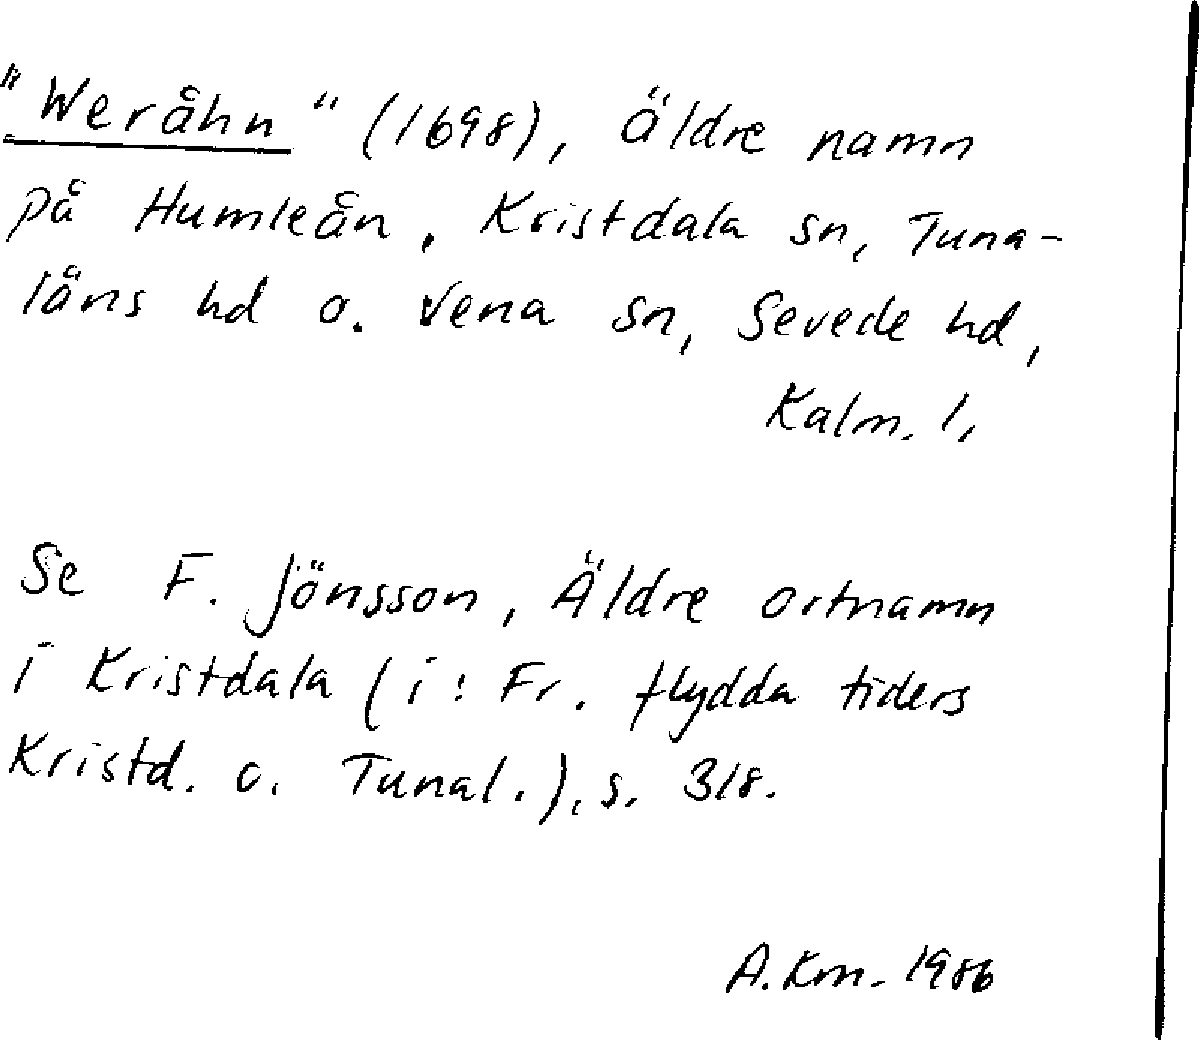 "Weråhn" (1698), äldre namn
på Humleån, Kristdala sn, Tuna-
läns hd o. Vena sn, Sevede hd,
Kalm. l,
Se F. Jönsson, Äldre ortnamn
i Kristdala (i: Fr. flydda tiders
Kristd. o. Tunal.), s. 318.
A.Km. 1986